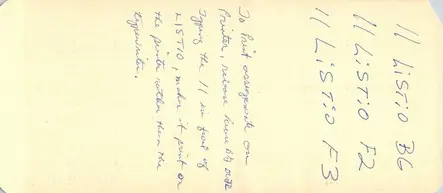 // LISTIO BG
// LISTIO F2
// LISTIO F3
To Print assignments on
Printer, release from BG and F2
Typing the // in front of
LISTIO, makes it print on
the printer rather than the
typewriter.